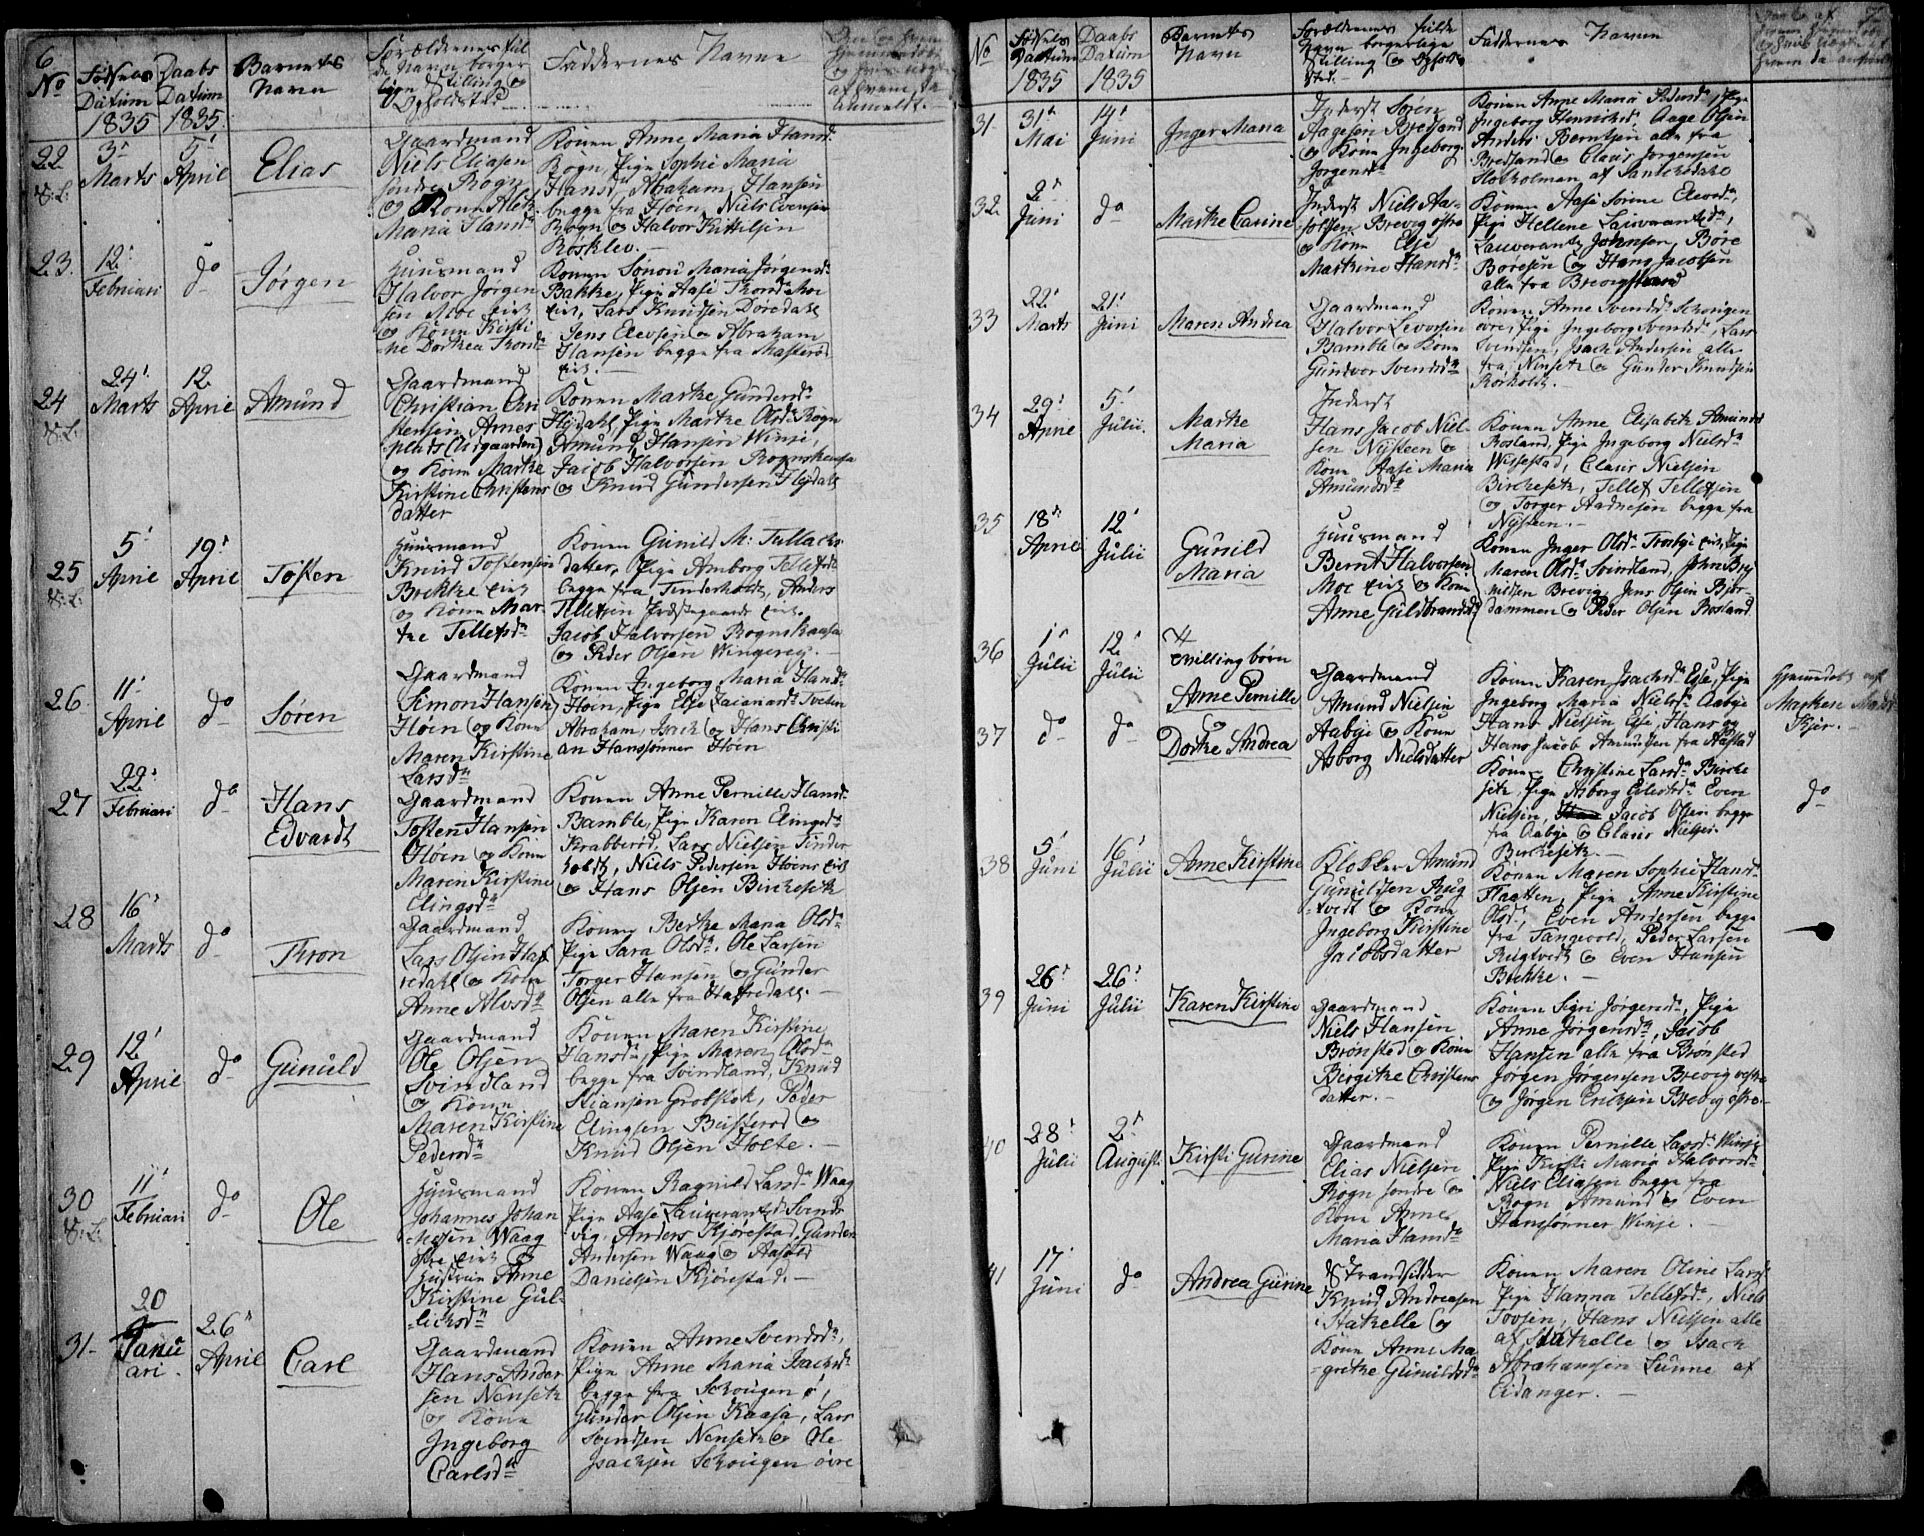 6
No
Fødsels
Datum
1835
Daabs
Datum
1835
Barnets
Navn
Forældrenes ful
de Navn borger
lige Stilling og
Opholdsted
Faddernes Navne
22
3'
Marts
5'
April
Elias
Gaardmand
Niels Eliasen
søndre Rogn
og Kone
Maria Hansd.
Konen Anne Maria Hansd.
Rogn, Pige Sophie Maria
Hansd, Abraham Hansen
begge fra Høen, Niels Evensen
Rogn og Halvor Kittilsen
Røsklev.
23.
12'
Februari
do
Jørgen
Huusmand
Halvor Jørgen
sen Moe Eie
og Kone Kirsti
ne Dorthea Thond
Konen Maria Jørgensd.
Bakke, Pige Aase
Eie, Lars Knudsen Dørdahl
Jens Elevsen og Abraham
Hansen begge fra
Eie.
24
24'
Marts
12.
April
Amund
Gaardmand
Christian Chri
stensen Arnes
plads (Lisgaarden)
og Kone Marthe
Kirstine Christens
datter
Konen Marthe Gundersd.
Flydahl, Pige Marthe Olsd. Rogn
Amund Hansen Winje,
Jacob Halvorsen Rognskaasa
og Knud Gundersen Flydahl
25
5'
April
19'
April
Tosten
Huusmand
Knud Tostensen
Brekke Eie
og Kone Mar
the Tellefsd.
Konen Gunild M: Tullachs
datter, Pige Amborg Tellefsd.
begge fra Tinderholdt, Anders
Tellefsen Præstegaards Eie.
Jacob Halvorsen Rognskaasa
og Peder Olsen Wingerej.
26
11'
April
do
Søren
Gaardmand
Simon Hansen
Høen og Kone
Maren Kirstine
Larsd.
Konen Ingeborg Maria Hansd.
Høen, Pige Else Tveten
Abraham, Isach og Hans Christi
an Hanssønner Høen
27
22'
Februari
do
Hans
Edvardt
Gaardmand
Tosten Hansen
Høen og Kone
Maren Kirstine
Elingsd.
Konen Anne Pernille Hansd.
Bamble, Pige Karen Elingsd.
Krabberød, Lars Nielsen Tinder
holdt, Niels Pedersen Høens Eie
og Hans Olsen Birkeseth
28
16'
Marts
do
Thron
Gaardmand
Lars Olsen Haf
redahl og Kone
Anne Alvsd.
Konen Berthe Maria Olsd.
Pige Sara Olsd. Ole Larsen
Torger Hansen og Gunder
Olsen alle fra Hafredahl.
29
12'
April
do
Gunuld
Gaardmand
Ole Olsen
Svindland
og Kone
Maren Kirstine
Pedersd.
Konen Maren Kirstine
Hansd., Pige Maren Olsd.
begge fra Svindland, Knud
Stiansen Grobstok, Peder
Elingsen Busterød og
Knud Olsen Holte.
30
11'
Februari
do
Ole
Huusmand
Johannes Johan
nesen Waag
østre Eie og
Hustrue Anne
Kirstine Gul
lichsd.
Konen Ragnild Larsd. Waag
Pige Aase Lauverantsd. Svends
vig. Anders Kjørestad, Gunder
Andersen Waag og
Danielsen Kjørestad.
31
20
Janu
ari.
26'
April
Carl
Gaardmand
Hans Ander
sen Nenseth
og Kone
Ingeborg
Carlsd.
Konen Anne Svendsd.,
Pige Anne Maria Isachsd.
begge fra Schougen ø,
Gunder Olsen Kaasa, Lars
Svendsen Nenseth og Ole
Isachsen Schougen øvre
No
Fødsels
Dattum
1835
Daabs
Datum
1835
Barnets
Navn
Forældrenes fulde
Navn borgerlige
Stilling og Ophold
sted.
Faddernes Navne
31
31'
Mai
14'
Juni
Inger Maria
Inderst Søren
Aagesen Bredsand
og Kone Ingeborg
Jørgensd.
Konen Anne Maria Pedersd., Pige
Ingeborg Henrichsd. Aage Olsen
Anders Berntsen alle fra
Bredsand og Claus Jørgensen
Flotholmen af Sanckedahl
32
2'
Juni
do
Marthe Carine
Inderst Niels Aa
solsen Brevig østre
og Kone Else
Marthine Hansd.
Konen Aase Sorine Elevsd.,
Pige Hellene Lauverantsd.,
Lauverants Johnsen, Børe
Børesen og Hans Jacobsen
alle fra Brevigstrand
33
22'
Marts
21'
Juni
Maren Andrea
Gaardmand
Halvor Levorsen
Bamble og Kone
Gundvor Svendsd.
Konen Anne Svendsd. Schougen
øvre, Pige Ingeborg Svendsd., Lars
Svendsen, Isach Andersen alle
fra Nenseth og Gunder Knudsen
Rørholdt.
34
29'
April
5'
Julii.
Marthe
Maria
Inderst
Hans Jacob Niel
sen Nysteen og
Kone Aase Maria
Amundsd.
Konen Anne Elisabeth Amundsd
Rosland, Pige Ingeborg Nielsd.
Wissestad, Claus Nielsen
Birkeseth, Tellef Tellefsen
og Torger Aadnesen begge fra
Nysteen.
35
18'
April
12'
Julii
Gunild
Maria
Huusmand
Bernt Halvorsen
Moe Eie og Kone
Anne Guldbrandsd.
Konen Inger Olsd. Trosbye Eie, Pige
Maren Olsd. Svindland, John Bry
nildsen Brevig, Jens Olsen Bjør
dammen og Peder Olsen Rosland
36
1'
Julii
12'
Julii
Tvillingbørn
Anne Pernille
og
37
do
do
Dorthe Andrea
Gaardmand
Amund Nielsen
Aabye og Kone
Asborg Nielsdatter
Konen Karen Isachsd. Ese, Pige
Ingeborg Maria Nielsd. Aabye
Hans Nielsen Ese, Hans og
Hans Jacob Amundsen fra Aafstad
Konen Christine Larsd. Birche
seth, Pige Asborg Evensd. Even
Nielsen, Jacob Olsen begge
fra Aabye og Claus Nielsen
Birkeseth.
Hjemmedøbt af
Kjær.
do
38
5'
Juni
16'
Julii
Anne Kirstine
Klokker Amund
Gunuldsen Rug
tvedt og Kone
Ingeborg Kirstine
Jacobsdatter
Konen Maren Sophie Hansd.
Flaatten, Pige Anne Kirstine
Olsd, Even Andersen begge
fra Tangevold, Peder Larsen
Rugtvedt og Even Hansen
Bekke.
39
26'
Juni
26'
Julii
Karen Kirstine
Gaardmand
Niels Hansen
Brønsted og Kone
Birgithe Christens
datter.
Konen Sigri Jørgensd., Pige
Anne Jørgensd., Jacob
Hansen alle fra Brønsted
Jørgen Jørgensen Brevig vestre
og Jørgen Eriksen Brevig østre
40
28'
Julii
2'
Augusti
Kirsti Gurine
Gaardmand
Elias Nielsen
Rogn søndre og
Kone Anne
Maria Hansd.
Konen Pernille Larsd. Winje
Pige Kirsti Maria Halvorsd.
Niels Eliasen begge fra
Rogn Amund og Even
Hanssønner Winje.
41
17'
Juni
do
Andrea Gurine
Strandsidder
Knud Andreasen
Stathelle og
Kone Anne Ma
grethe Gunuldsd.
Konen Maren Oline Larsd.
Pige Hanna Tellefsd., Niels
Tovsen, Hans Nielsen alle
af Stathelle og Isach
Abrahamsen Lunne af
Eidanger.